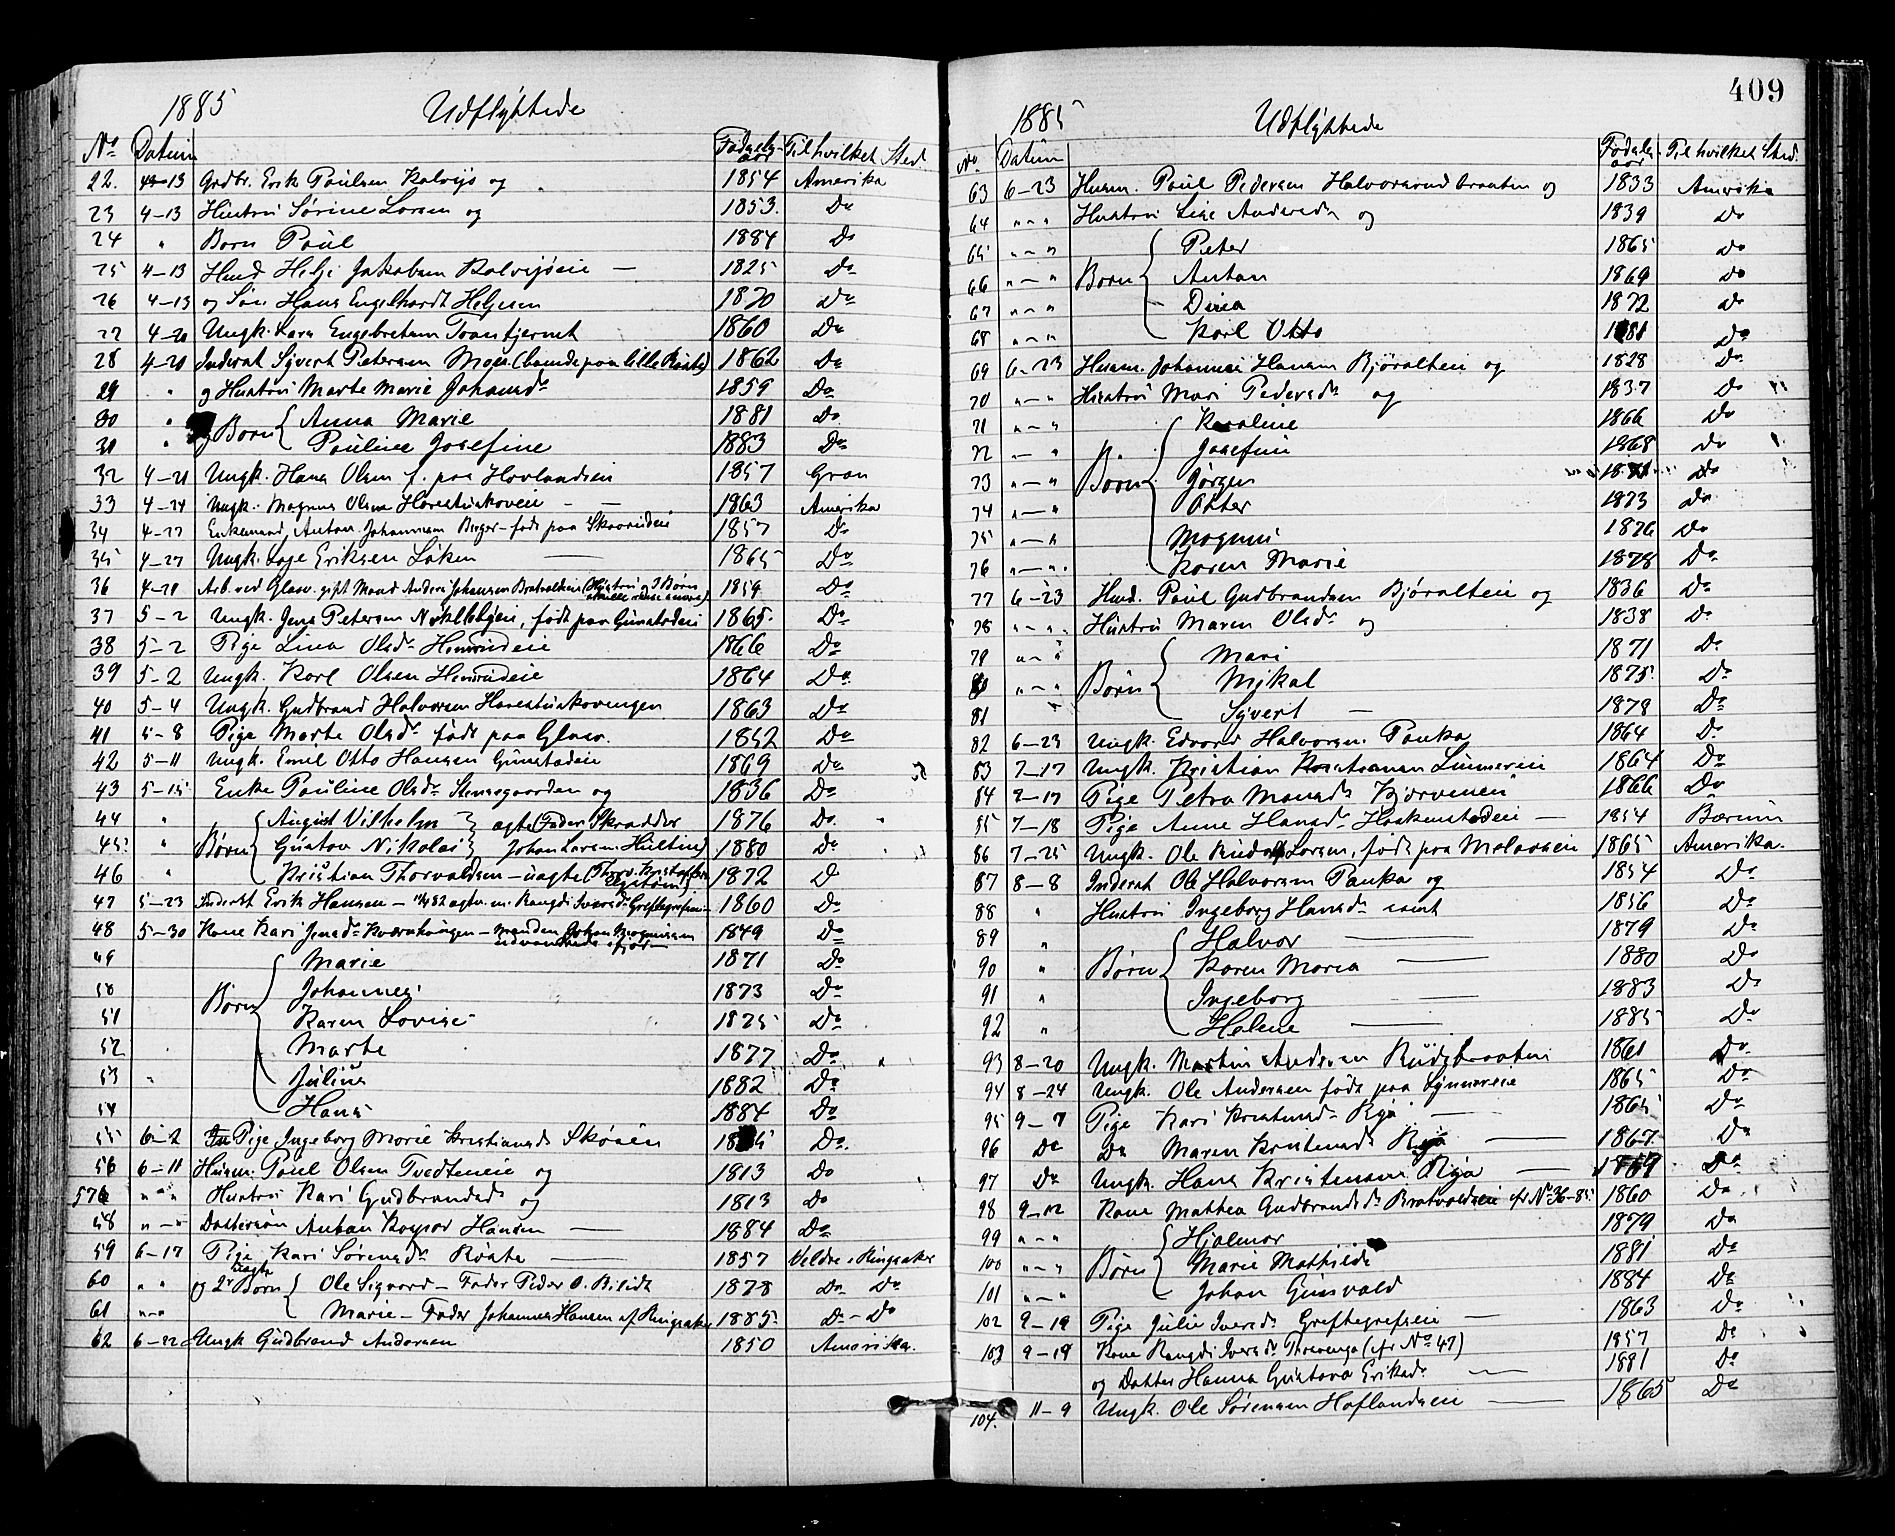 1885 Udflyttede
No Datum Fødsels-aar Til hvilket Sted
22. 4-13 Grdbr. Erik Paulsen Kalvsjø og 1854 Amerika
23 4-13 Hustru Sørine Larsen og 1853. Do
24 " Barn Paul 1884 Do
25 4-13 Husd Helge Jakobsen Kalvsjøeie — 1825 Do
26 4-13 og Søn Hans Engelhardt Helgesen 1870 Do
27 4-20 Ungk. Lars Engebretsen 1860 Do
28 4-20 Inderst Syvert Petersen Moen (boende paa lille Raate) 1862 Do
29 " og Hustru Marte Marie Johansdr 1859 Do
30 " og Børn { Anna Marie 1881 Do
31 " Pauline Josefine 1883 Do
32 4-21 Ungk. Hans Olsen f. paa Hovlandseie 1857 Gran
33 4-24 Ungk. Magnus Olsen Harestuskoveie — 1863 Amerika
34 4-27 Enkemand, Anton Johannesen Berger - født paa 1857 Do
35 4-27 Ungk. Lage Eriksen Løken — 1865 Do
36 4-28 Arb. ved Glasv. gift Mand Anders Johansen Bratvoldeie (Hustru og 3 Børn 1859 Do
37 5-2 Ungk. Jens Petersen født paa Gunstadeie 1865. Do
38 5-2 Pige Lina Olsdr Hemsrudeie 1866 Do
39 5-2 Ungk. Karl Olsen Hemsrudeie 1864 Do
40 5-4 Ungk. Gudbrand Halvorsen Harestuskovengen 1863 Do
41 5-8 Pige Marte Olsdr født paa Glasv. 1852 Do
42 5-11 Ungk. Emil Otto Hansen Gunstadeie 1869 Do
43 5-15 Enke Pauline Olsdr Stensgaarden og 1836 Do
44 " { August Vilhelm } ægte (Fader Skrædder 1876 Do
45 " Børn { Gustav Nikolai } Johan Larsen Hultin) 1880 Do
46 " Kristian Thorvaldsen - uægte (Thorv. Kristoffersen 1872 D
47 5-23 Inderst Erik Hansen - ægtev. m. Rangdi Iversdr Greftegrefseie - 1860 Do
48 5-30 Kone Kari Jensdr Kværnhaugen - Manden Johan Magnussen udvandrede ifjor - 1849 Do
49 { Marie 1871 Do
50 Børn { Johannes 1873 Do
51 Karen Lovise 1875 Do
52 Marte 1877 Do
53 " Julius 1882 Do
54 Hans 1884 Do
55 6-2 Pige Ingeborg Marie Kristiansdr Skøien 1885 Do.
56 6-11 Husm. Paul Olsen Tvedteneie og 1813 Do
57 " - " Hustru Kari Gudbrandsdr og 1813 Do
58 " - " Dattersøn Anton Kaspar Hansen — 1884 Do
59 6-17 Pige Kari Sørensdr Raate — 1857 Veldre i Ringsaker
60 " " og 2 uægte Børn { Ole Sigvard - Fader Peder O. Bilidt 1878 Do Do
61 " - " Marie - Fader Johannes Hansen af Ringsaker 1885. Do - Do
62 6-22 Ungk Gudbrand Andersen 1850 Amerika.
409
1885 Udflyttede
No Datum Fødsels-aar Til hvilket Sted.
63 6-23 Husm. Paul Pedersen Halvorsrudbraaten og 1833 Amerika
64 " - " Hustru Lise Andersdr og 1839 Do
65 " - " { Peter 1865 Do
66 " - " Børn { Anton 1869 Do
67 " - " Dina 1872 Do
68 " - " Karl Otto 1881 Do
69 6-23 Husm. Johannes Hansen Bjøralteie og 1828 Do
70 " - " Hustru Mari Pedersdr og 1837 Do
71 " - " { Karoline 1866 Do
72 " - " Josefine 1868 Do
73 " - " Børn { Jørgen 1871 Do
74 " - " Otter 1873 Do
75 " - " Magnus 1876 Do
76 " - " Karen Marie 1878 Do
77 6-23 Husd. Paul Gudbrandsen Bjøralteie og 1836 Do
78 " - " Hustru Maren Olsdr og 1838 Do
79 " - " { Mari 1871 Do
80 " - " Børn { Mikal 1875 Do
81 " Syvert — 1878 Do
82 6-23 Ungk. Edvard Halvorsen Pauka 1864 Do
83 7-17 Ungk. Kristian Linnereie 1864 Do
84 7-17 Pige Petra Monsdr Bjørveneie 1866 Do
85 7-18 Pige Anne Hansdr Haakenstadeie — 1854 Bærum
86 7-25 Ungk. Ole Rudolf Larsen, født paa 1865 Amerika.
87 8-8 Inderst Ole Halvorsen Pauka og 1854 Do
88 " Hustru Ingeborg Hansdr samt 1856 Do
89 " { Halvor — 1879 Do
90 " Børn { Karen Maria — 1880 Do
91 " Ingeborg — 1883 Do
92 " Helene — 1885 Do
93 8-20 Ungk. Martin Andersen Rudsbraaten 1861 Do
94 8-24 Ungk. Ole Andersen født paa Lynnereie 1865 Do
95 9-7 Pige Kari Kristensdr Rya — 1865 Do
96 Do Do Maren Kristensdr Rya — 1867 Do
97 Do Ungk. Hans Kristensen Rya — 1869 Do
98 9-12 Kone Mathea Gudbrandsdr Bratvoldseie cfr No 36-85 1860 Do
99 " - " { Hjalmar 1879 Do
100 " - " Børn { Marie Mathilde 1881 Do
101 " - " Johan Gunvald 1884 Do
102 9-19 Pige Julie Iversdr Greftegrefseie — 1863 Do
103 9-19 Kone Rangdi Iversdr (cfr No 47) 1857 Do
og Datter Hanna Gustava Eriksdr — 1881 Do
104. 11-9 Ungk. Ole Sørensen Haflandseie — 1865 Do